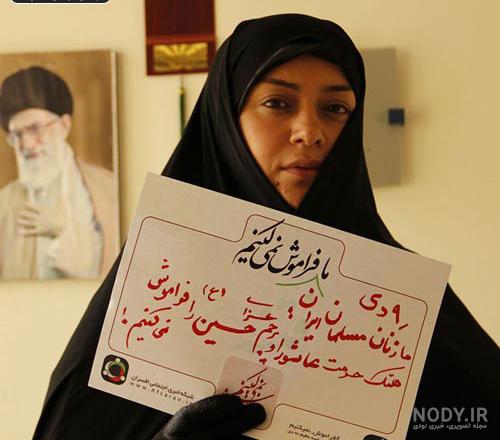 ما فراموش نمی‌کنیم
۹ دی
ما زنان مسلمان ایران
هتک حرمت عاشورا و پرچم عزای حسین (ع) را فراموش نمی‌کنیم!
شبکه خبری اجتماعی افسران
www.Afsaran.ir
#فراموش_نمیکنیم
NODY.IR
مجله تصویری، خبری نودی